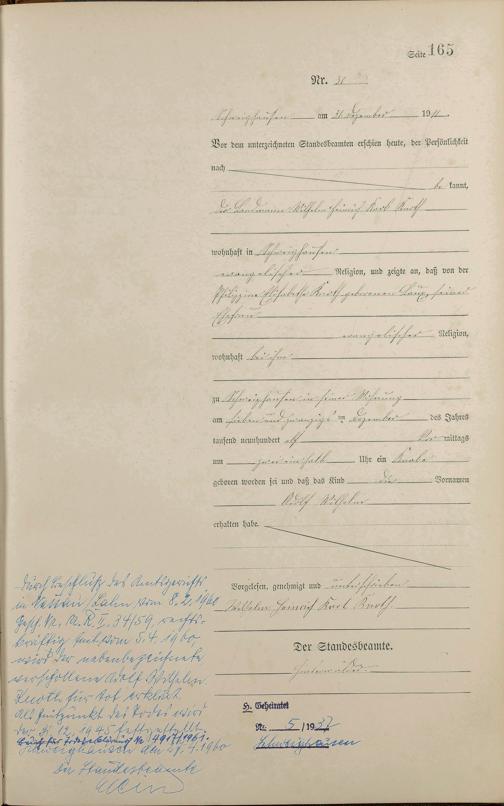 Seite 165
Nr. 31
Schweighausen am 31. Dezember 1911.
Vor dem unterzeichneten Standesbeamten erschien heute, der Persönlichkeit
nach
be kannt,
der Landmann Wilhelm Heinrich Karl Knoth
wohnhaft in Schweighausen
evangelischer Religion, und zeigte an, daß von der
Philippine Elisabethe Knoth geborenen seiner
Ehefrau
evangelischer Religion,
wohnhaft bei ihm
zu Schweighausen in seiner Wohnung
am sieben und zwanzigsten Dezember des Jahrs
tausend neunhundert elf Vor mittags
um zwei einhalb Uhr ein Knabe
geboren worden sei und daß das Kind die Vornamen
Adolf Wilhelm
erhalten habe.
Vorgelesen, genehmigt und unterschrieben
Wilhelm Heinrich Karl Knoth
Der Standesbeamte.
Durch Beschluß des Amtsgerichts
in Nassau/Lahn vom 8.2.1960
Gesch. Nr. U.R. II. 34/59, rechts-
kräftig seit vom 5.4.1960,
wird der nebenbezeichnete
verschollene Adolf Wilhelm
Knoth für tot erklärt
Als Zeitpunkt des Todes wird
der 31.12.1945 festgestellt.
Schweighausen, den 29.4.1960
Der Standesbeamte
H. Geheiratet
Nr. 5/1937
Schweighausen